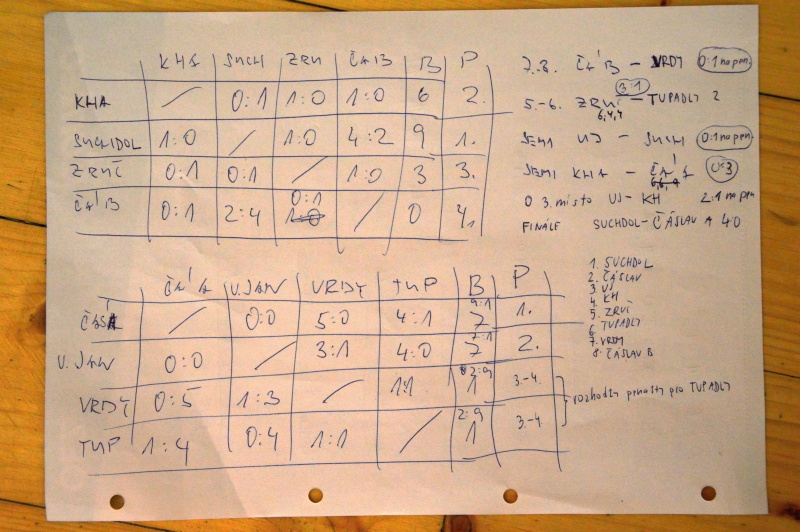 KHA SUCH ZRU ČÁB B P
KHA 0:1 1:0 1:0 6 2.
SUCHDOL 1:0 1:0 4:2 9 1.
ZRUČ 0:1 0:1 1:0 3 3.
ČÁB 0:1 2:4 0:1 0 4.
ČÁA U.JAN VRDY TUP B P
ČÁSA 0:0 5:0 4:1 9:1 7 1.
U.JAN 0:0 3:1 4:0 7:1 7 2.
VRDY 0:5 1:3 1:1 2:9 1 3.-4.
TUP 1:4 0:4 1:1 2:9 1 3.-4.
rozhodly penalty pro TUPADLY
7.8. ČÁB - VRDY 0:1 na pen.
3:1
5.-6. ZRUČ - TUPADLY 2
6,4,4
SEMI UJ - SUCH 0:1 na pen.
SEMI KHA - ČÁA 0:3
O 3. místo UJ - KH 2:1 na pen
FINÁLE SUCHDOL - ČÁSLAV A 4:0
1. SUCHDOL
2. ČÁSLAV
3. UJ
4. KH
5. ZRUČ
6 TUPADLY
7. VRDY
8. ČÁSLAV B